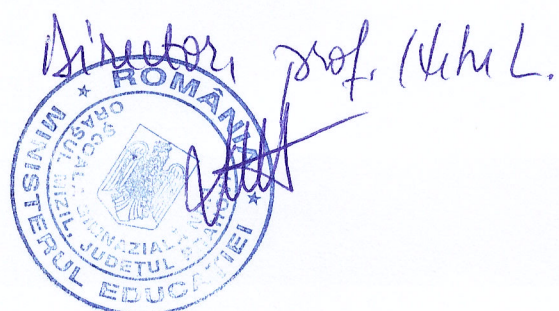 Director, prof. L.
ROMÂNIA
MINISTERUL EDUCAȚIEI
ȘCOALA GIMNAZIALĂ
ORAȘUL MIZIL, JUDEȚUL